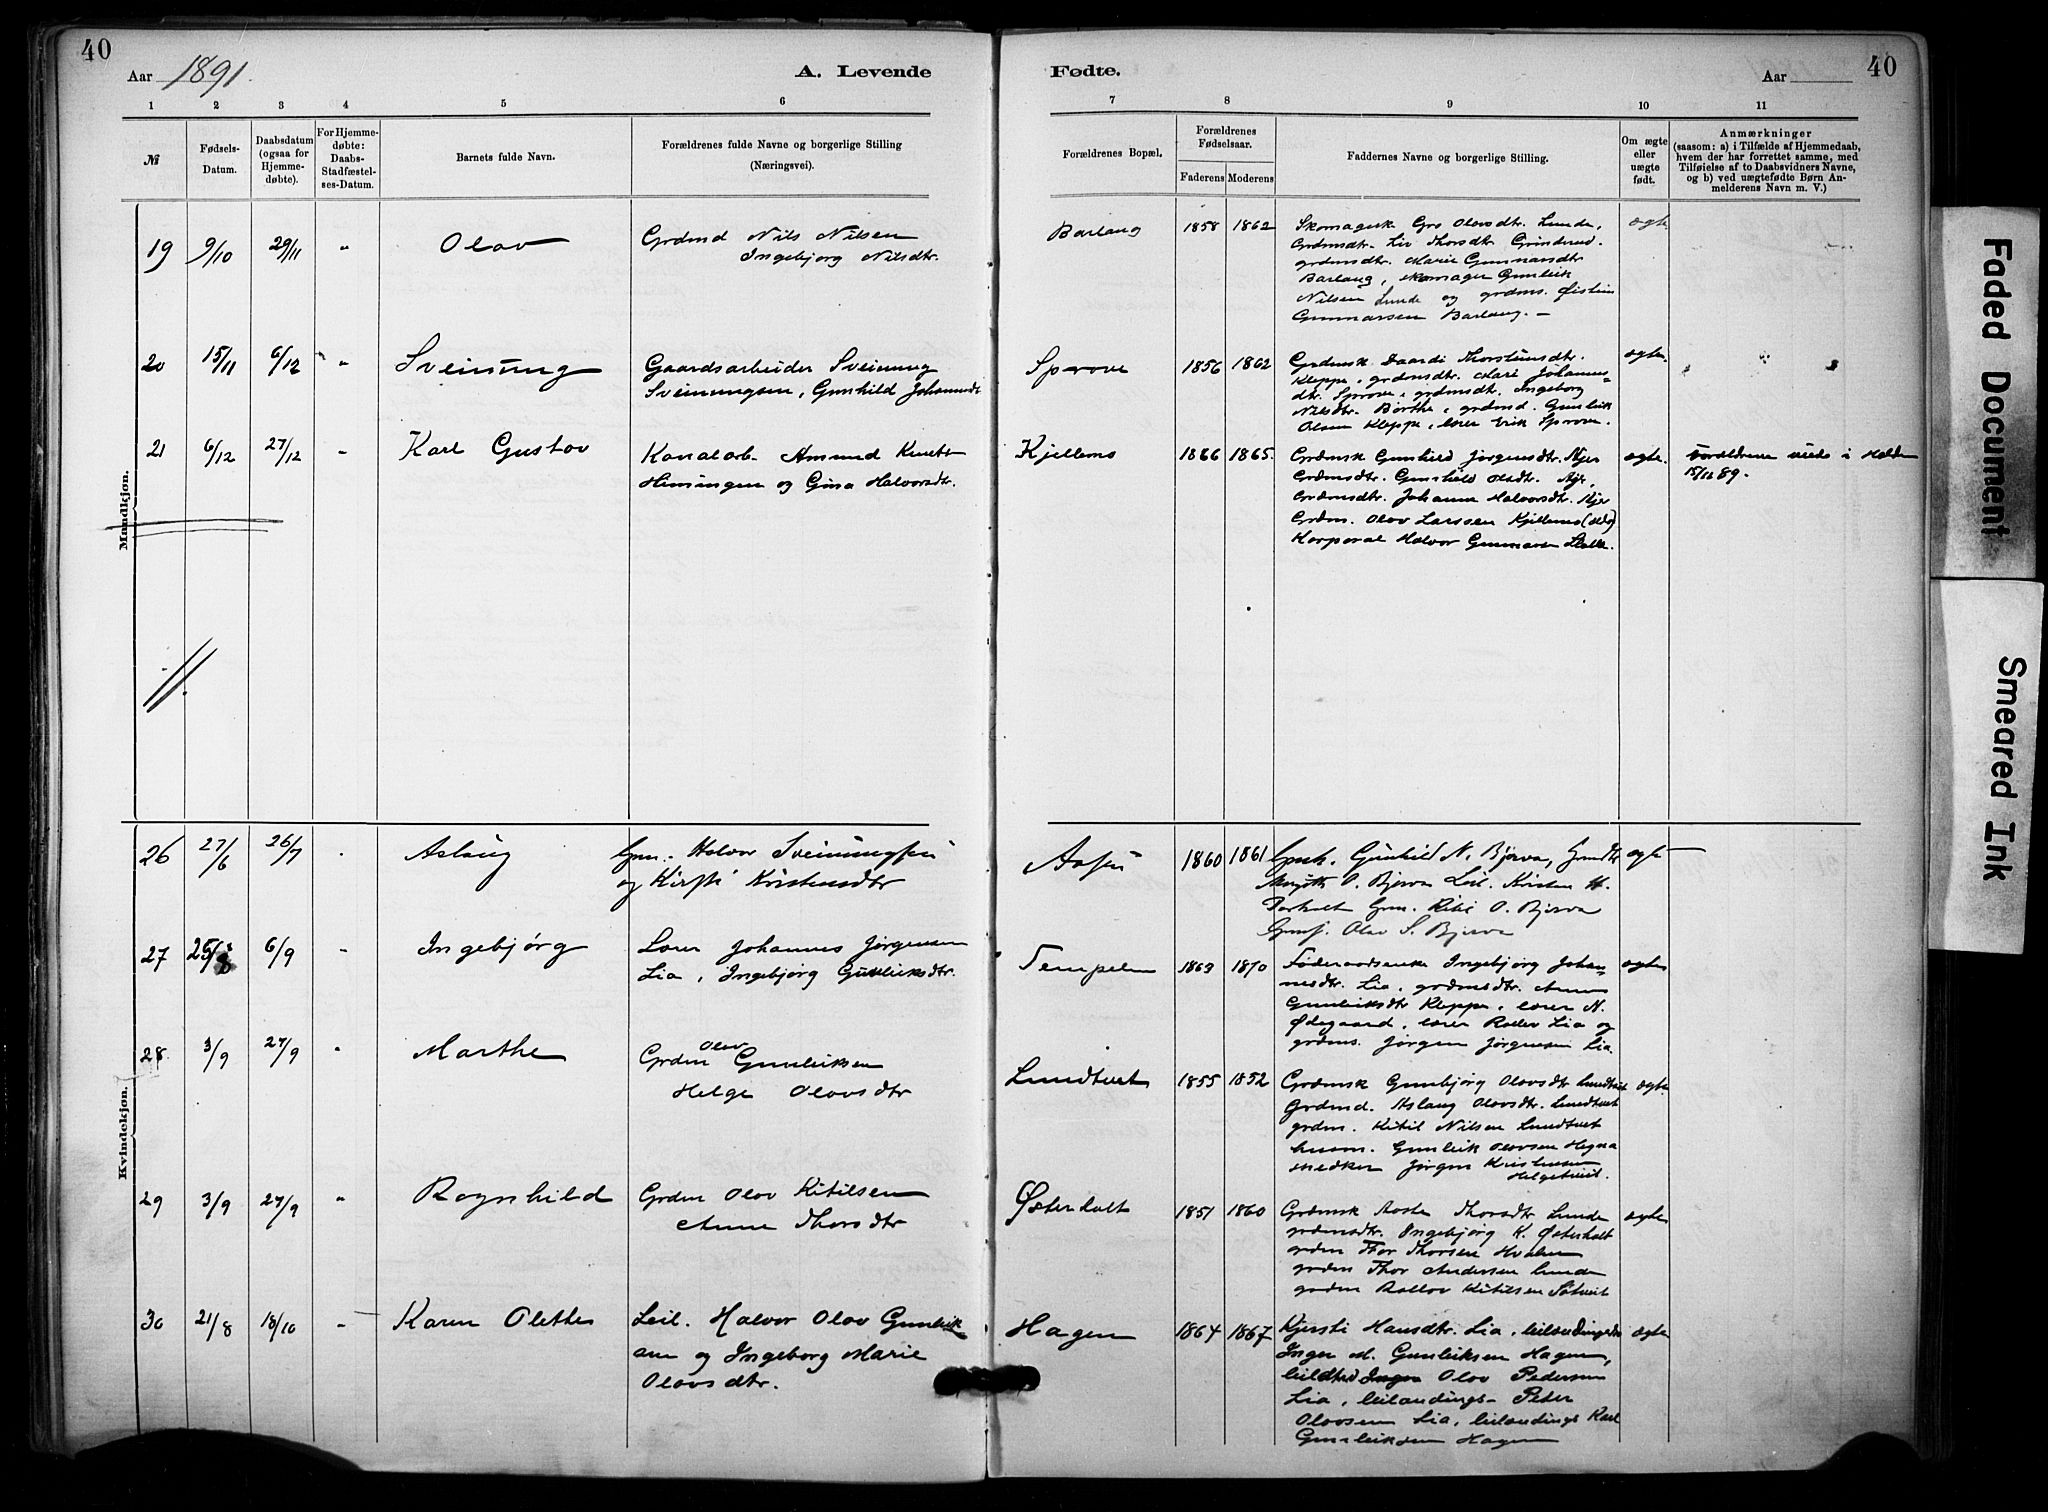 40
Aar 1891.
A. Levende
Fødte.
Aar
40
1 2 3 4 5 6
7 8 9 10 11
№
Fødsels-
Datum.
Daabsdatum
(ogsaa for
Hjemme-
døbte).
For Hjemme-
døbte:
Daabs-
Stadfæstel-
ses-Datum.
Barnets fulde Navn.
Forældrenes fulde Navne og borgerlige Stilling
(Næringsvei).
Forældrenes Bopæl.
Forældrenes
Fødselsaar.
Faderens Moderens
Faddernes Navne og borgerlige Stilling.
Om ægte
eller
uægte
født.
Anmærkninger
(saasom: a) i Tilfælde af Hjemmedaab,
hvem der har forrettet samme, med
Tilføielse af to Daabsvidners Navne,
og b) ved uægtefødte Børn An-
melderens Navn m. V.)
Mandkjøn.
19 9/10 29/11 " Olav
Grdmd Nils Nilsen
Ingebjørg Nilsdtr.
Barlaug 1858 1862
Skomagersk Gro Olavsdtr. Lunde,
Grdmsdtr. Liv Thorsdtr. Grinderud.
grdmsdtr. Marie Gunnarsdtr
Barlaug, skomager Gunleik
Nilsen Lunde og grdms. Øistein
Gunnarsen Barlaug. —
ægte
20 15/11 6/12 " Sveinung
Gaardsarbeider Sveinung
Sveinungsen, Gunhild Johannesdt
Sprove 1856 1862
Grdmsk Daardi Thorsteinsdtr.
Kleppe, grdmsdtr. Mari Johannes-
dtr. Sprove, grdmsdtr. Ingeborg
Nilsdtr. Børthe, grdmd. Gunleik
Olsen Kleppe, lærer Erik Sprove.
ægte.
21 6/12 27/12 " Karl Gustav
Kanalarb. Amund
og Gina Halvorsdtr.
Kjellemo 1866 1865.
Grdmsk Gunhild Jørgensdtr.
Grdmsdtr. Gunhild Olsdtr.
Grdmsdtr. Johanne Halvorsdtr.
Grdm. Olav Larssen Kjellemo
Korporal Halvor Gunnarsen
ægte.
Forældrene viede i
15/11 89.
Kvindekjøn.
26 27/6 26/7 Aslaug
Gm. Halvor Sveinungsen
og Kirsti Kristensdtr
Aasen 1860 1861
Gunhild N. Bjerva,
O. Bjerva Leil. Kristen H.
Gm. O. Bjerva
Olav S. Bjerva
ægte
27 25/8 6/9 " Ingebjørg
Lærer Johannes Jørgensen
Lia, Ingebjørg Gunleiksdtr.
Tempelen 1863 1870
Føderaadsenke Ingebjørg Johan-
nesdtr. Lia, grdmsdtr. Anne
Gunleiksdtr Kleppe, lærer N.
Ødegaard, lærer Rollev Lia og
grdms. Jørgen Jørgensen Lia.
ægte
28 3/9 27/9 " Marthe
Olav
Grdm Gunleiksen
Helge Olavsdtr
Lundtveit 1855 1852
Grdmsk Gunbjørg Olavsdtr Lundtveit
Grdmd. Aslaug Olavsdtr. Lundtveit
grdm. Kitil Nilsen Lundtveit
husm. Gunleik Olavsen Hegna
snedker Jørgen Kristensen
Helgetveit.
ægte.
29 3/9 27/9 " Ragnhild
Grdm Olav Kitilsen
Anne Thorsdtr
Østerholt 1851 1860
Grdmsk Aaste Thorsdtr Lunde
grdmsdtr. Ingebjørg K. Østerholt
grdm Thor Thorsen
grdm Thor Andersen Lunde
grdm Rollev Kitilsen
ægte
30 21/8 18/10 — Karen Olette
Leil. Halvor Olav Gunleik
sen og Ingeborg Marie
Olavsdtr.
Hagen 1864 1867
Kjersti Hansdtr. Lia,
Inger M. Gunleiksen Hagen,
Olav Pedersen
Lia, leilændings- Peter
Olavsen Lia, leilændings Karl
Gunleiksen Hagen
ægte
Faded Document
Smeared Ink